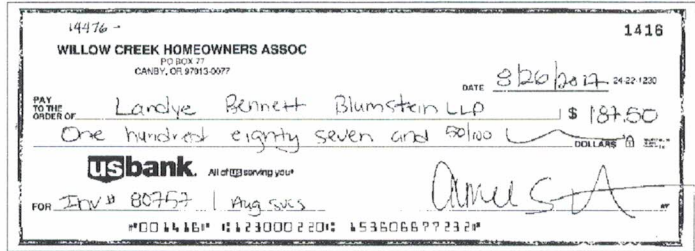 14476 -
1416
WILLOW CREEK HOMEOWNERS ASSOC
PO BOX 77
CANBY, OR 97013-0077
DATE 8/26/2017 24-22-1230
PAY TO THE ORDER OF Landye Bennett Blumstein LLP $ 187.50
One hundred eighty seven and 50/100 DOLLARS
usbank. All of us serving you®
FOR Inv # 80757 / Aug svcs
⑈001416⑈ ⑆123000220⑆ 153606677232⑈